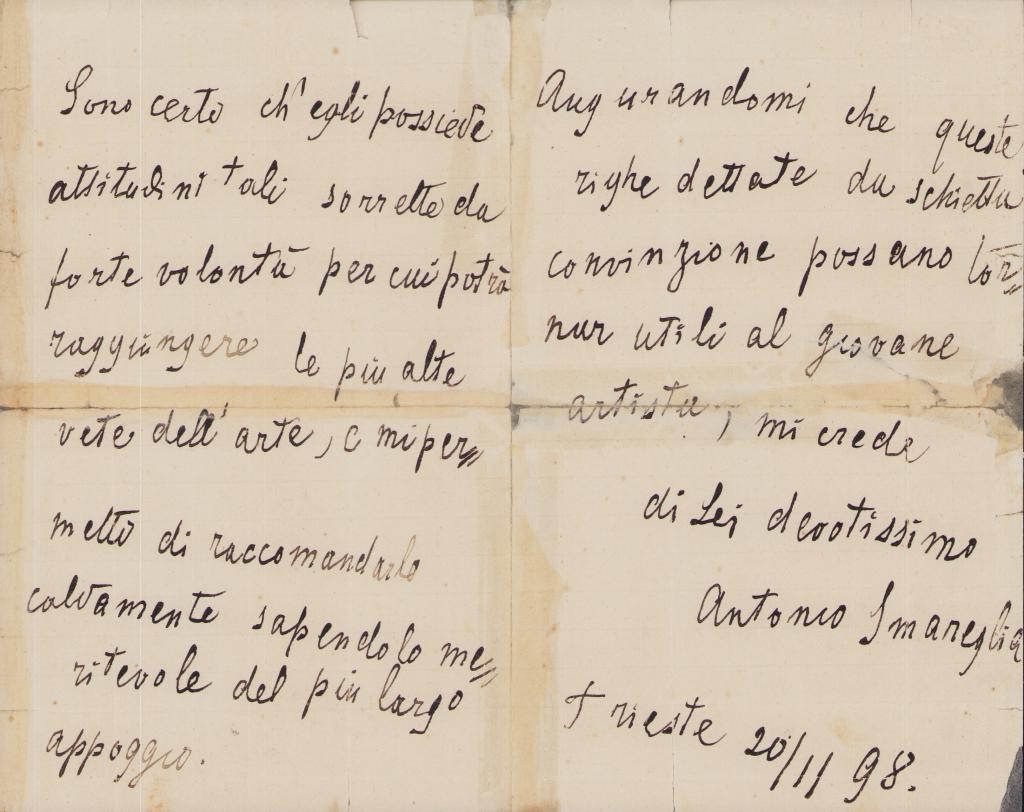 Sono certo ch'egli possiede
attitudini tali sorrette da
forte volontà per cui potrà
raggiungere le piu alte
vete dell'arte, e mi per=
metto di raccomandarlo
caldamente sapendolo me=
ritevole del piu largo
appoggio.
Augurandomi che queste
righe dettate da schietta
convinzione possano tor=
nar utili al giovane
artista, mi creda
di Lei devotissimo
Antonio Smareglia
Trieste 20/11 98.